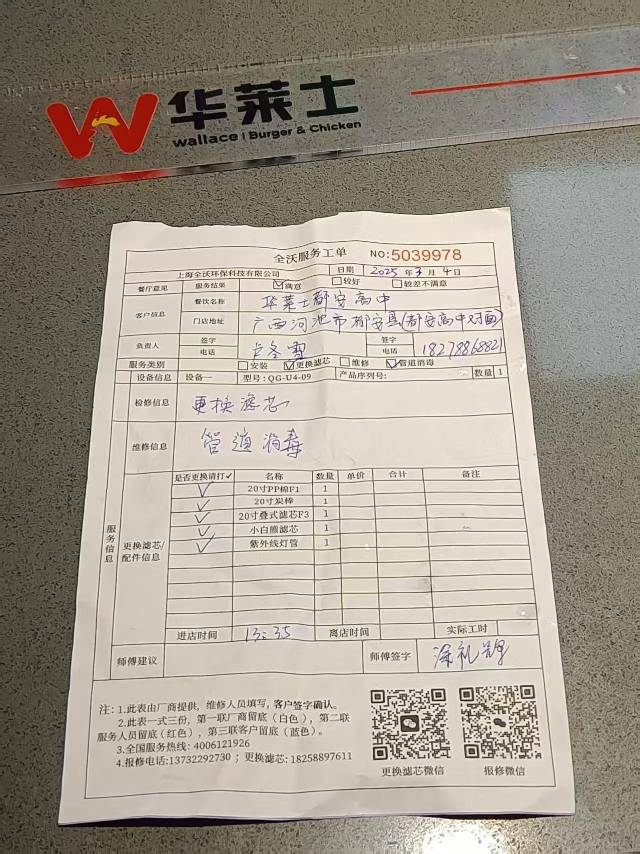 华莱士
Wallace | Burger & Chicken
全沃服务工单 NO:5039978
上海全沃环保科技有限公司 日期 2025 年 3 月 4 日
餐厅意见 服务结果 满意 较好 较差不满意
客户信息 餐饮名称 华莱士都安高中
门店地址 广西河池市都安县(都安高中对面)
负责人 签字 签字
电话 电话 18278868821
服务类别 安装 更换滤芯 维修 管道消毒
设备信息 设备一 型号: QG-U4-09 产品序列号: 数量 1
检修信息 更换滤芯
维修信息 管道消毒
服务信息
更换滤芯/配件信息
是否更换请打✓ 名称 数量 单价 合计 备注
✓ 20寸PP棉F1 1
✓ 20寸炭棒 1
✓ 20寸叠式滤芯F3 1
✓ 小白熊滤芯 1
✓ 紫外线灯管 1
进店时间 13:35 离店时间 实际工时
师傅建议 师傅签字
注: 1.此表由厂商提供, 维修人员填写, 客户签字确认。
2.此表一式三份, 第一联厂商留底(白色), 第二联
服务人员留底(红色), 第三联客户留底(蓝色)。
3.全国服务热线: 4006121926
4.报修电话:13732292730 ; 更换滤芯: 18258897611
更换滤芯微信 报修微信